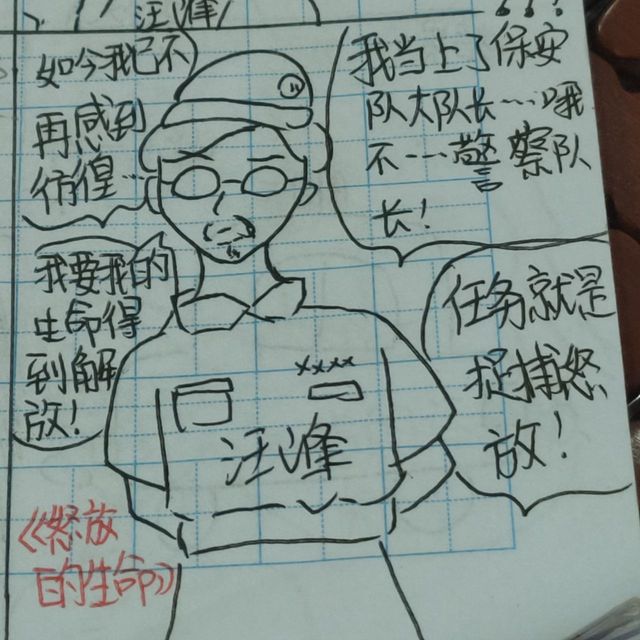 汪峰
???
如今我已不
再感到
彷徨
我当上了保安
队大队长……哦
不……警察队
长！
我要我的
生命得
到解
放！
任务就是
捉捕怒
放！
xxxx
汪峰
《怒放
的生命》